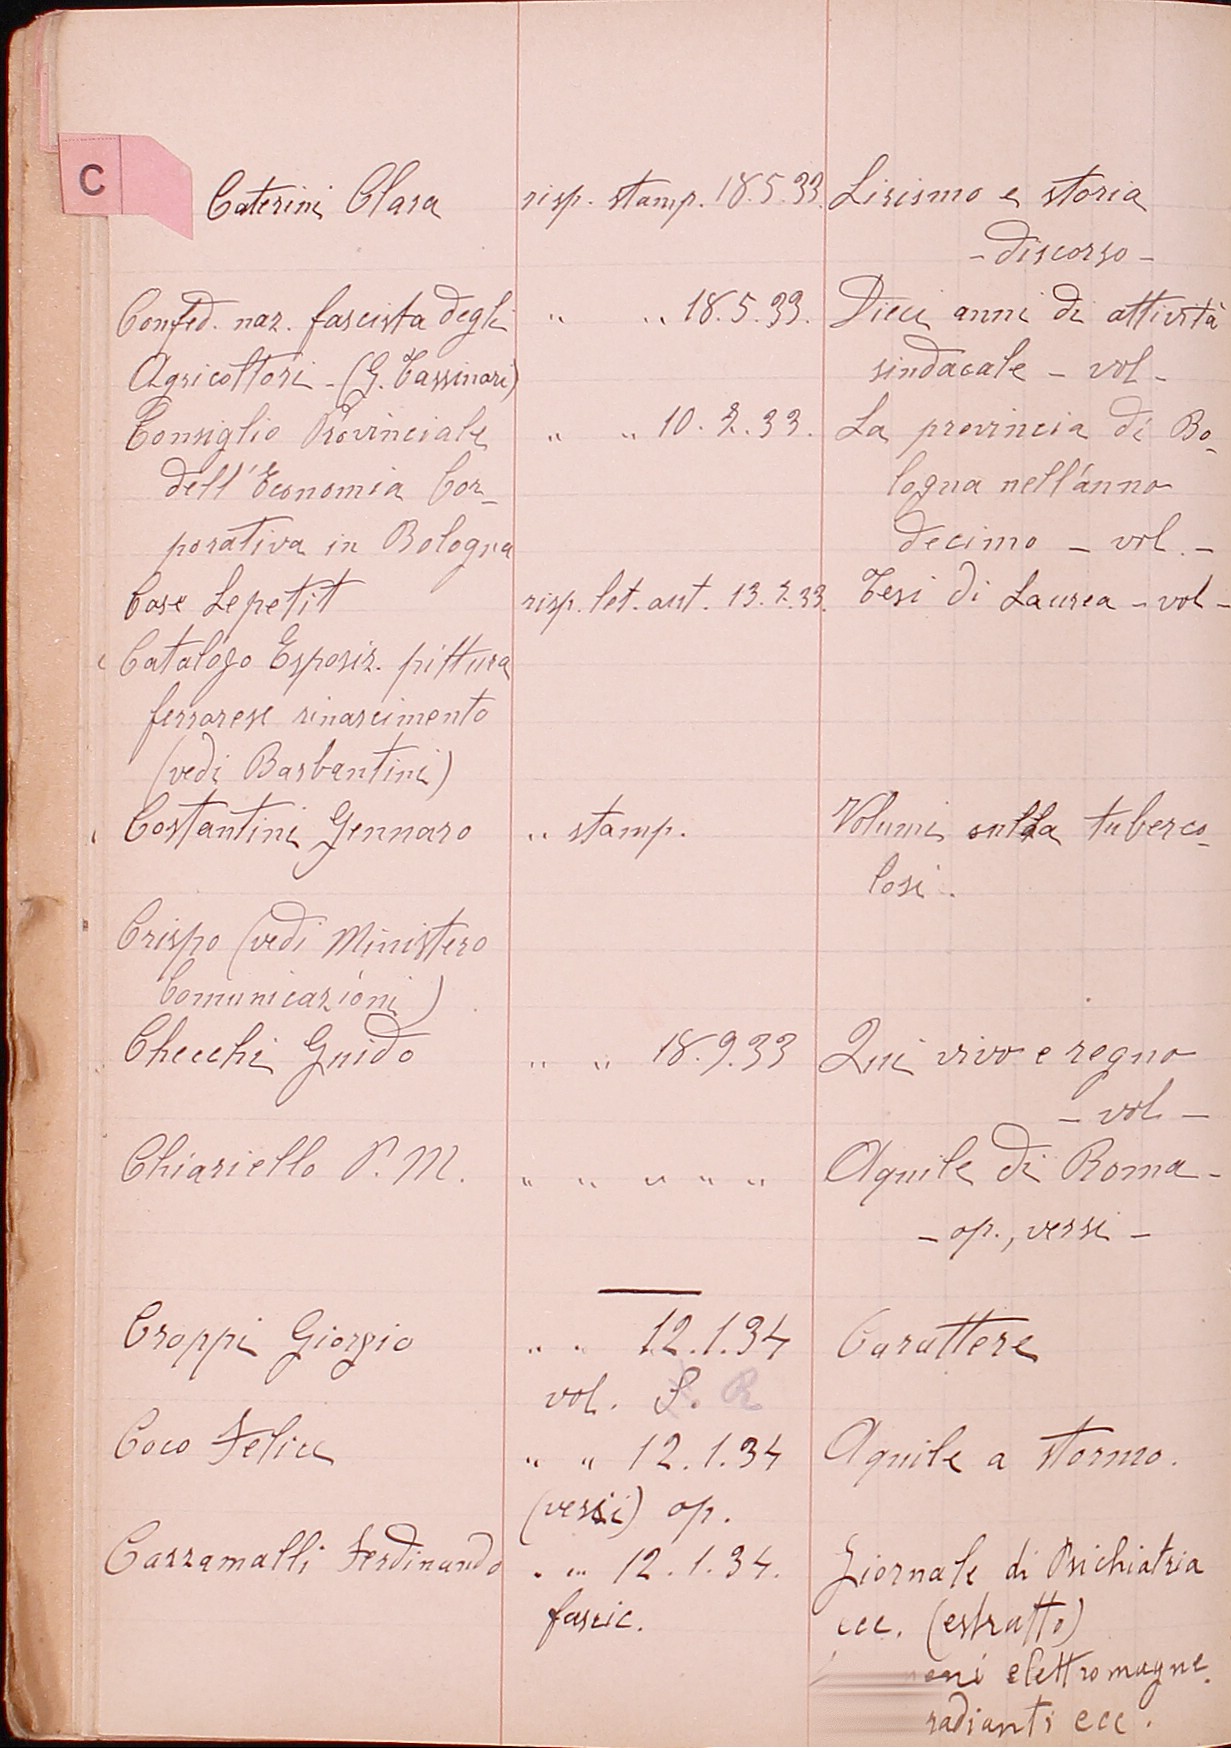 C
Caterini Clara risp. stamp. 18.5.33. Lirismo e storia
- discorso -
Confed. naz. fascista degli " " 18.5.33. Dieci anni di attività
Agricoltori - (G. Tassinari) sindacale - vol -
Consiglio Provinciale " " 10.2.33. La provincia di Bo-
dell'Economia Cor- logna nell'anno
porativa in Bologna decimo - vol. -
Case Lepetit risp. let. aut. 13.2.33. Tesi di Laurea - vol -
Catalogo Esposiz. pittura
ferrarese rinascimento
(vedi Barbantini)
Costantini Gennaro " stamp. Volumi sulla tuberco-
losi.
Crispo (vedi Ministero
Comunicazioni)
Checchi Guido " " 18.9.33 Qui vivo e regno
- vol -
Chiariello P. M. " " " " " Aquile di Roma -
- op., versi -
Croppi Giorgio " " 12.1.34 Carattere
vol. S. R
Coco Felice " " 12.1.34 Aquile a stormo.
(versi) op.
Cazzamalli Ferdinando " " 12.1.34. Giornale di Psichiatria
fascic. ecc. (estratto)
eni elettromagne.
radianti ecc.